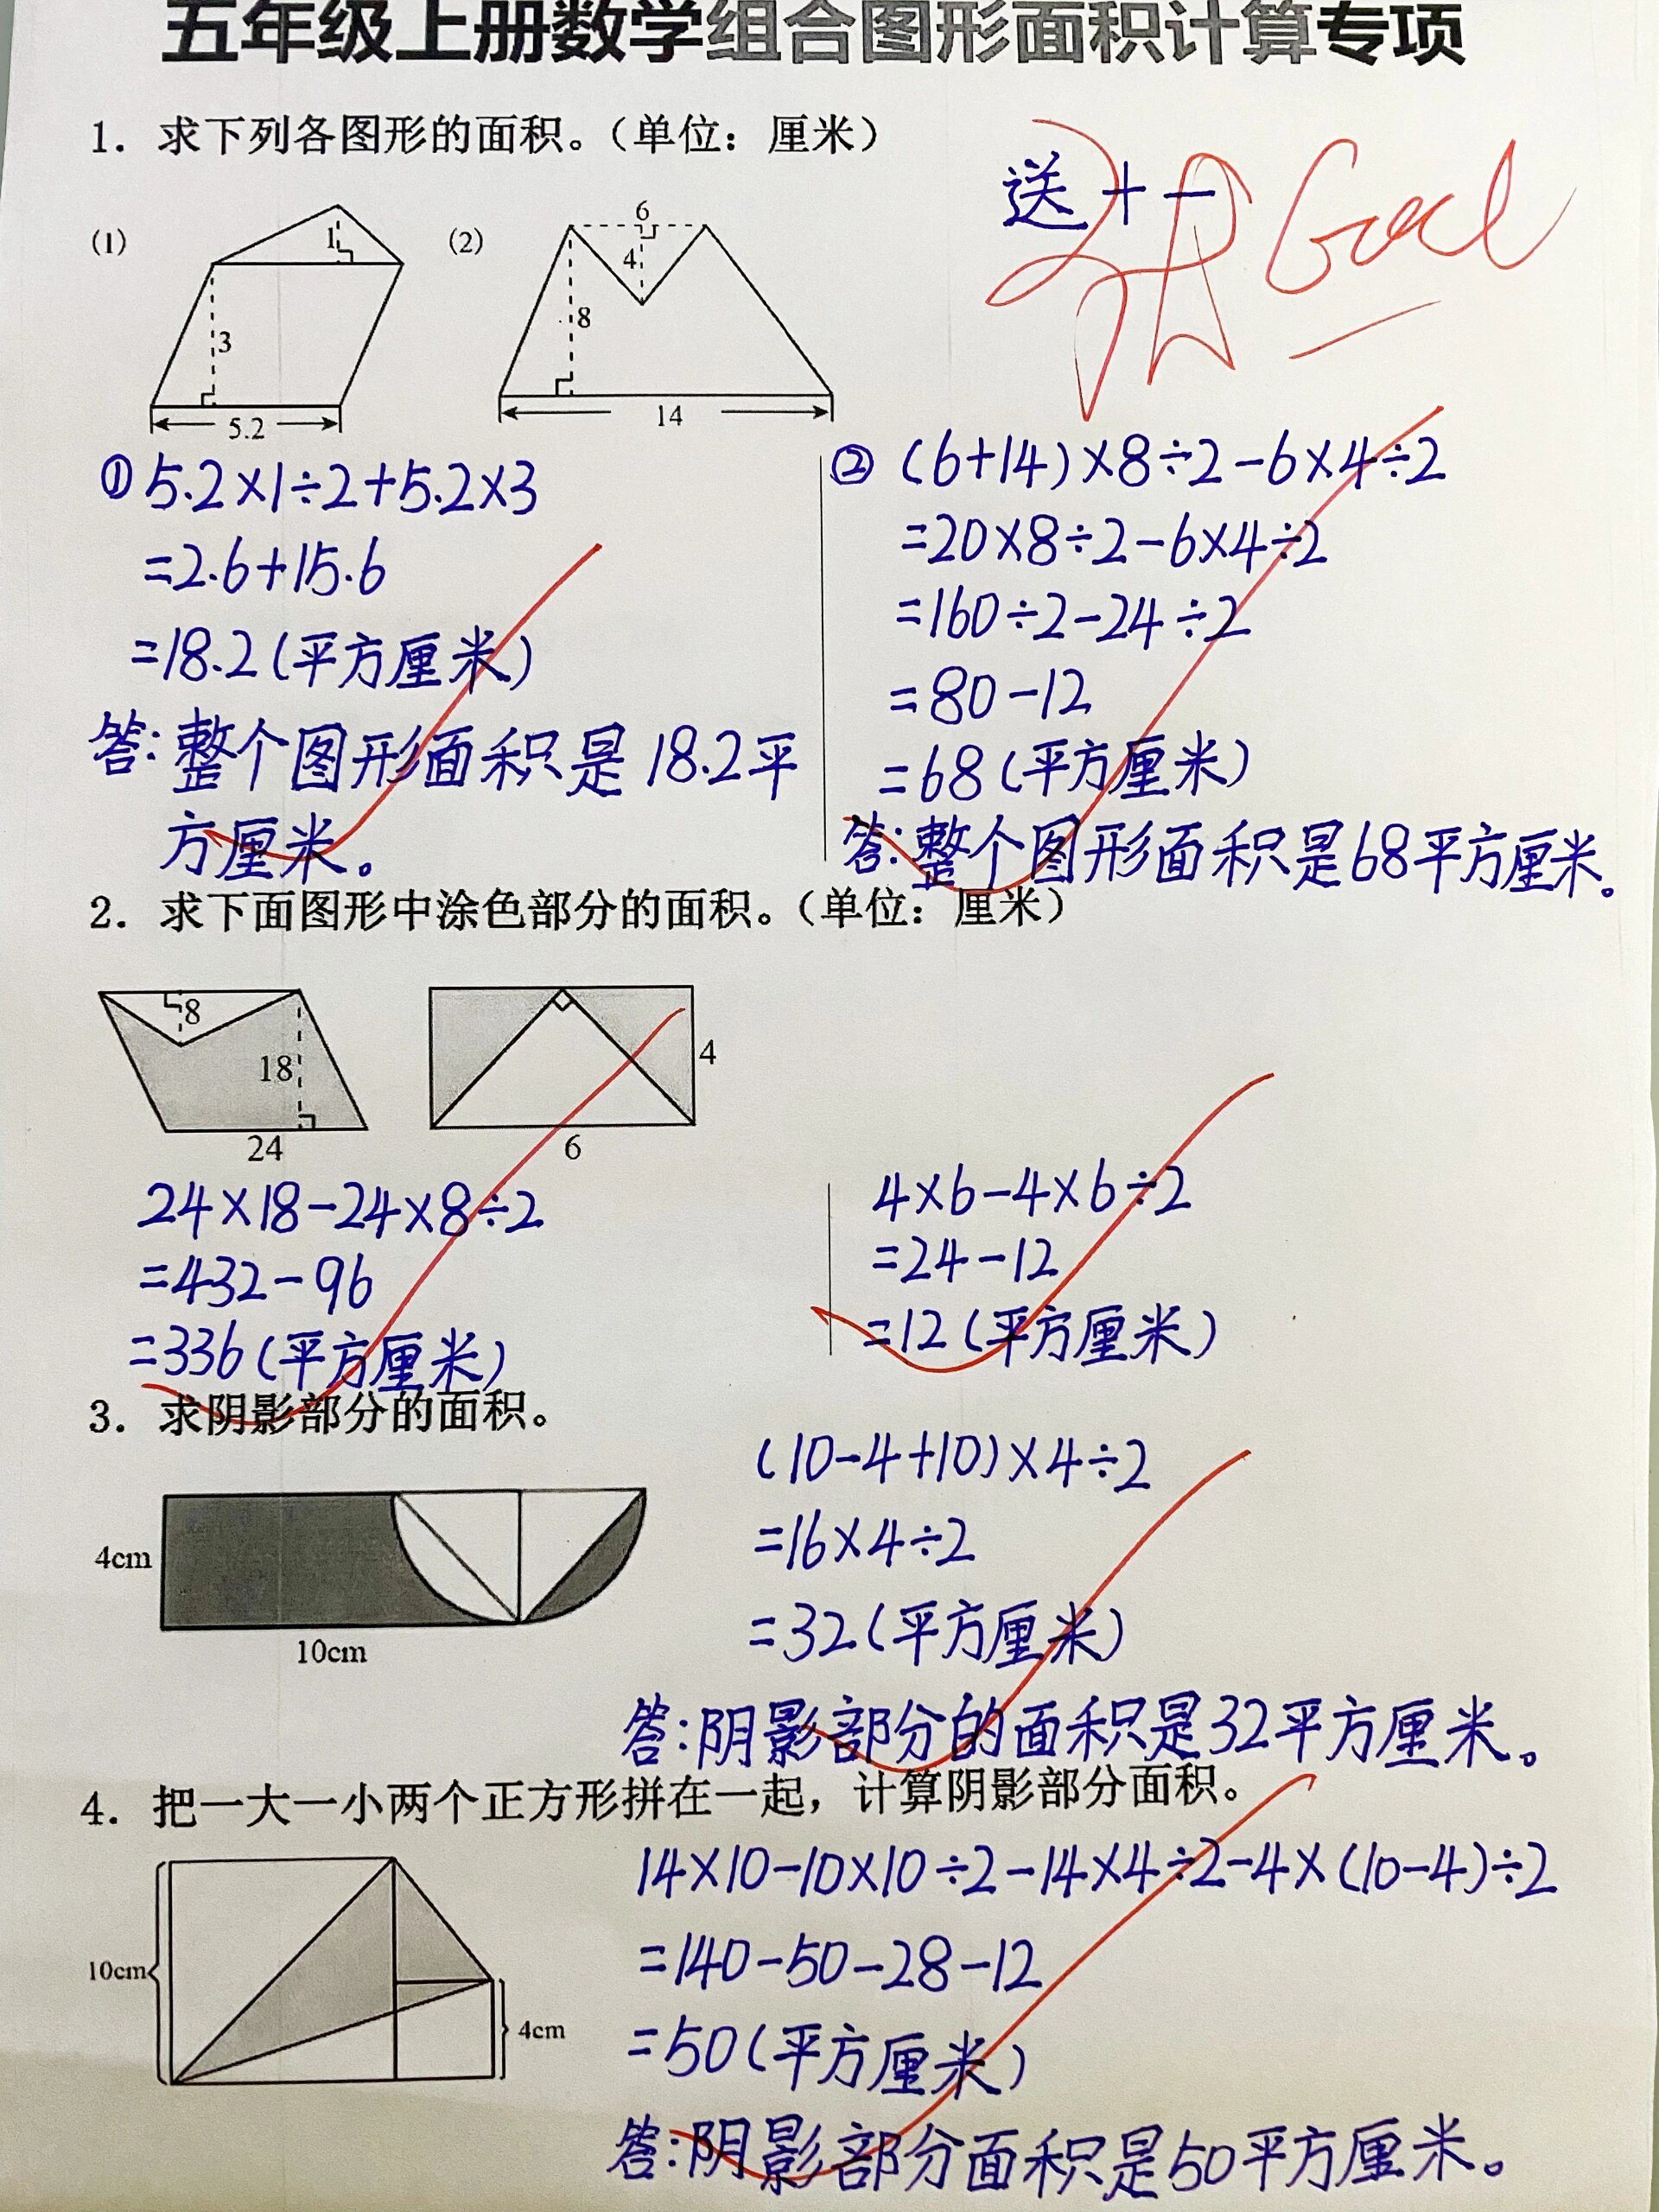 五年级上册数学组合图形面积计算专项
1. 求下列各图形的面积。（单位：厘米）
送十一
Good
(1)
1
3
5.2
(2)
6
4
8
14
① 5.2×1÷2+5.2×3
=2.6+15.6
=18.2(平方厘米)
答:整个图形面积是18.2平
方厘米。
② (6+14)×8÷2-6×4÷2
=20×8÷2-6×4÷2
=160÷2-24÷2
=80-12
=68(平方厘米)
答:整个图形面积是68平方厘米。
2. 求下面图形中涂色部分的面积。（单位：厘米）
8
18
24
4
6
24×18-24×8÷2
=432-96
=336(平方厘米)
4×6-4×6÷2
=24-12
=12(平方厘米)
3. 求阴影部分的面积。
4cm
10cm
(10-4+10)×4÷2
=16×4÷2
=32(平方厘米)
答:阴影部分的面积是32平方厘米。
4. 把一大一小两个正方形拼在一起，计算阴影部分面积。
10cm
4cm
14×10-10×10÷2-14×4÷2-4×(10-4)÷2
=140-50-28-12
=50(平方厘米)
答:阴影部分面积是50平方厘米。